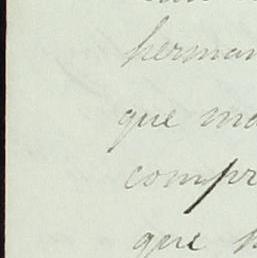 herman
que ma
compr
que